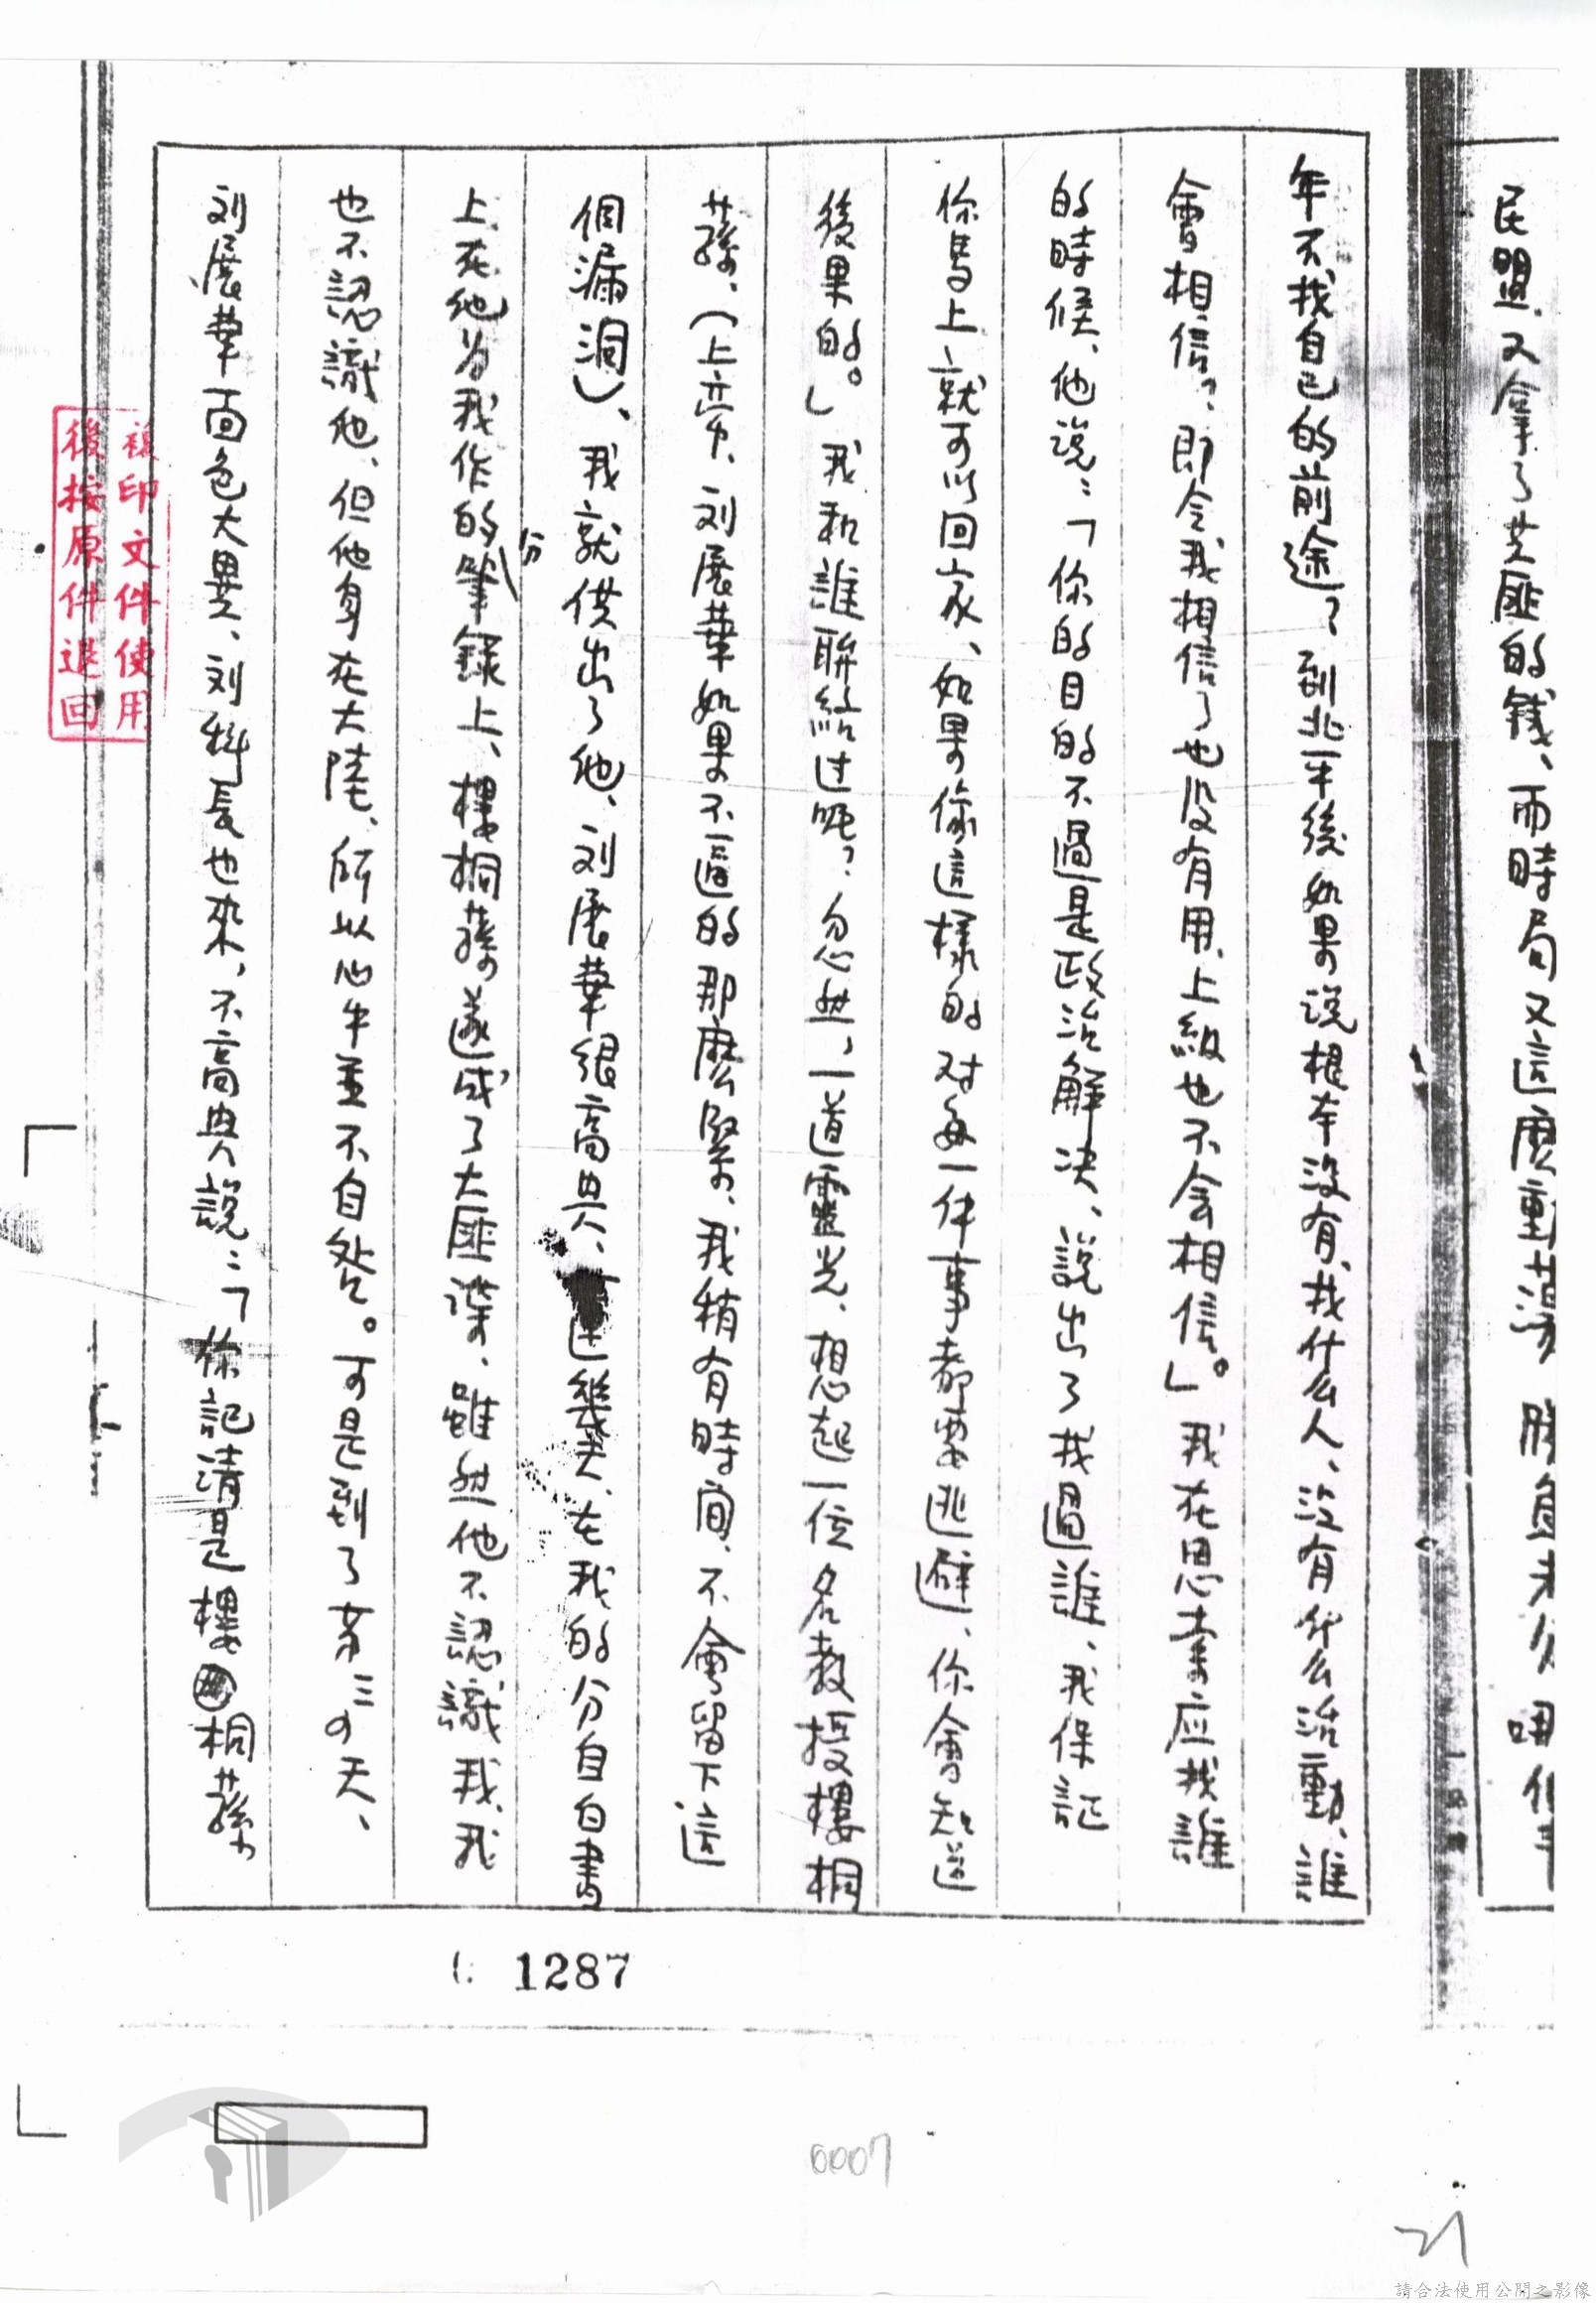 民盟、又拿了共匪的錢、而時局又這麼動蕩 勝負未分
年不找自已的前途？到北平後如果說根本没有找什么人、没有什么活動、誰
會相信？、即令我相信了也没有用、上級也不会相信。」我在思索应找誰
的時候、他説：「你的目的不過是政治解决、說出了找過誰、我保証
你馬上就可以回家、如果像這樣的对每一件事都要逃避、你會知道
後果的。」我和誰聯絡过呢？忽然、一道靈光、想起一位名教授樓桐
蓀、（上帝、刘展華如果不逼的那麼緊、我稍有時间、不會留下這
個漏洞）、我就供出了他、刘展華很高兴、幾天、在我的分自白書
上在他为我作的分筆錄上、樓桐蓀遂成了大匪諜、雖然他不認識我、我
也不認識他、但他身在大陸、所以心中並不自咎。可是到了第三の天、
刘展華面色大異、刘科長也來、不高興説：「你記清是樓桐蓀
複印文件使用
後按原件退回
1287
0007
21
請合法使用公開之影像